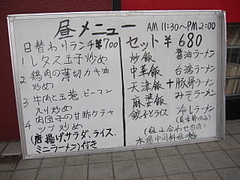 昼メニュー
AM 11:30〜PM 2:00
日替わりランチ¥700
1 レタス玉子炒め
2 鶏肉の薄切りカキ油炒め
3 牛肉と玉葱ピーマン入り炒め
4 肉団子の甘酢ケチャップ炒め
(唐揚げ、サラダ、ライス、ミニラーメン)付き
セット ¥680
炒飯
中華飯
天津飯
麻婆飯
餃子とライス
+
醤油ラーメン
台湾ラーメン
豚骨ラーメン
みそラーメン
冷しラーメン
(組み合わせ自由)